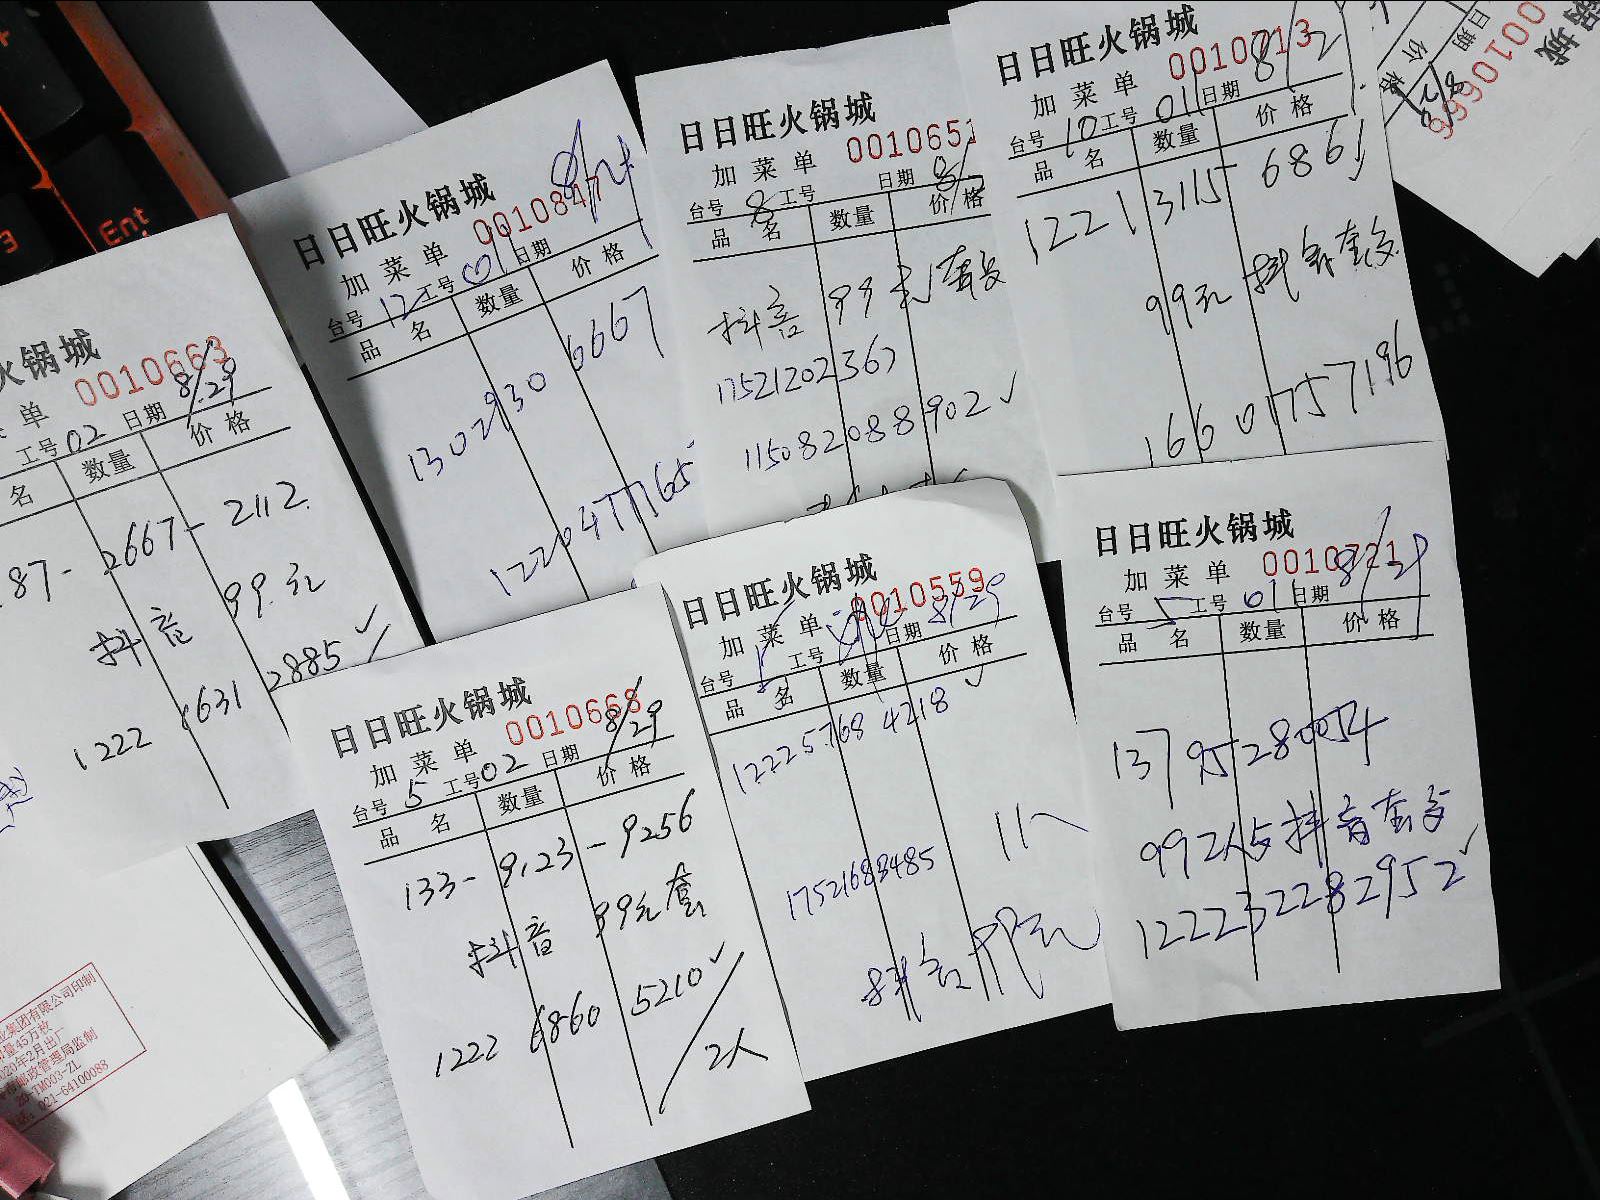 Ent
3
火锅城
0010663
单
工号 02 日期 8/29
名 数量 价格
87- 2667- 2112.
抖音 99.元
1222 6631 2885 ✓
日日旺火锅城
0010847 8/24
加菜单
台号 12 工号 01 日期
品名 数量 价格
1302930 6667
1220477165
日日旺火锅城
加菜单 0010651
台号 8 工号 日期 8/
品名 数量 价格
抖音 99元套
17521202367
115082088902 ✓
日日旺火锅城
0010713 8/2
加菜单
台号 10 工号 01 日期
品名 数量 价格
1221 3115 6861
99元 抖音套
16601757196
城
0010666
日期 8/29
价格
日日旺火锅城
0010668
加菜单 8/29
台号 5 工号 02 日期
品名 数量 价格
133- 9123-9256
抖音 99元套
1222 6860 5210 ✓
2人
日日旺火锅城
0010559
加菜单
台号 工号 日期 8/29
品名 数量 价格
12225768 4218 ✓
17521683485
抖音
日日旺火锅城
加菜单 0010721
台号 5 工号 01 日期 8/
品名 数量 价格
13795280054
99 2人 抖音套
122232282952 ✓
业集团有限公司印制
量45万枚
2020年2月出厂
邮政管理局监制
ZD-TM003-ZL
021-64100088